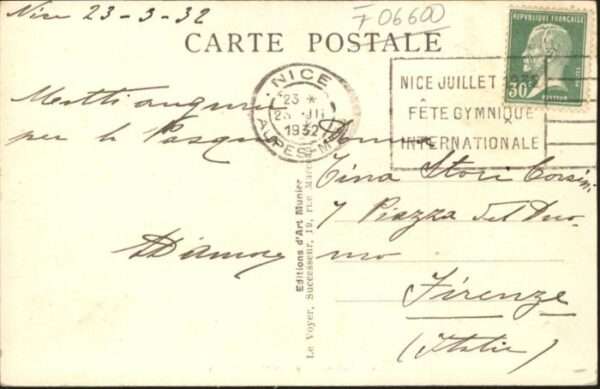 Nice 23-3-32
F06600
CARTE POSTALE
RÉPUBLIQUE FRANÇAISE
30c
POSTES
PASTEUR
NICE
23 *
23 III
1932
ALPES-Mmes
NICE JUILLET 1932
FÊTE GYMNIQUE
INTERNATIONALE
Molti auguri
per la Pasqua
D'Amore
Editions d'Art Munier
Le Voyer, Successeur, 19, rue Marc
Tina Stori Corsini
7 Piazza del Duo-
mo
Firenze
(Italie)